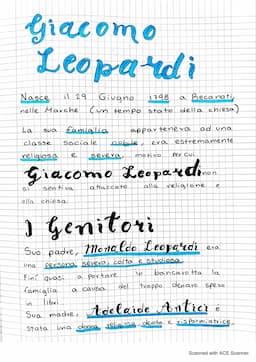 Giacomo
Leopardi
Nasce il 29 Giugno 1798 a Recanati,
nelle Marche (un tempo stato della chiesa)
La sua famiglia apparteneva ad una
classe sociale nobile, era estremamente
religiosa e severa, motivo per cui
Giacomo Leopardi non
si sentiva attaccato alla religione e
alla chiesa.
I Genitori
Suo padre, Monaldo Leopardi era
una persona severa, colta e studiosa.
Finì quasi a portare in bancarotta la
famiglia a causa del troppo denaro speso
in libri.
Sua madre, Adelaide Antici è
stata una donna religiosa, and risparmiatrice.
Scanned with ACE Scanner